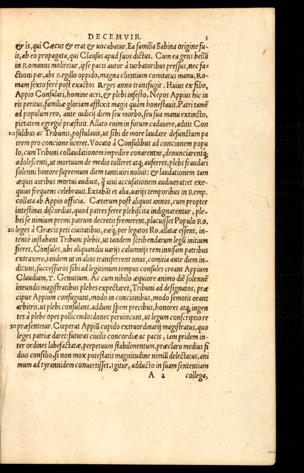 DECEMVIR. 3
& is, qui Cæcus & erat & uocabatur. Ea familia Sabina origine fu-
it, ab eo propagata, qui Clausus apud suos dictus. Cum ea gens belli
in Romanos moliretur, ipse pacis autor à turbatoribus pressus, nec fa-
ctioni par, abs Regillo oppido, magna clientium comitatus manu, Ro-
mam sexto ferè post exactos Reges anno transfugit. Huius ex filio,
Appio Consulari, homine acri, & plebi infesto, Nepos Appius hic iu
ris peritus, familiæ gloriam afflixit magis quàm honestauit. Patri tamē
ad populum reo, ante iudicij diem seu morbo, seu sua manu extincto,
pietatem egregiè præstitit. Allato enim in forum cadauere, aditis Con
10 sulibus ac Tribunis, postulauit, ut sibi de more laudare defunctum pa
trem pro concione liceret. Vocato à Consulibus ad concionem popu
lo, cum Tribuni collaudationem impedire conarentur, denunciarentq́;
adolescenti, ut mortuum de medio tolleret atq́; auferret, plebs fraudari
solenni honore supremum diem tanti uiri noluit: & laudationem tam
æquis auribus mortui audiuit, quàm uiui accusationem audiuerat: ex
equias frequens celebrauit. Extabāt et alia, uarijs temporibus in Remp.
collata ab Appio officia. Cæterum post aliquot annos, cum propter
intestinas discordias, quod patres ferre plebiscita indignarentur, ple-
bei se nimium premi patrum decretis fremerent, placuisset Populo Ro.
20 leges à Græcis peti ciuitatibus, easq́; per legatos Ro. allatæ essent, in-
tentè instabant Tribuni plebis, ut tandem scribendarum legū initium
fieret. Consules, ubi aliquandiu uarijs calumnijs rem inusam patribus
extraxere, tandem ut in alios transferrent onus, comitia ante diem in-
dicunt, successurós sibi ad legitimum tempus consules creant Appium
Claudium, T. Genutium. Ac cum nihilo æquiore animo diē solennē
ineundis magistratibus plebes expectaret, Tribuni ad designatos, præ
cipue Appium confugiunt, modo in concionibus, modo semotis orant
arbitris, ut plebi consulant. addunt spem precibus, honores atq́; ingen
tes à plebe opes pollicendo: donec peruincunt, ut legum conscriptio re
30 præsentetur. Cœperat Appij cupido extraordinarij magistratus, quo
leges patriæ daret: futuras ciuilis concordiæ ac pacis, iam pridem in-
ter ordines labefactatæ, perpetuum stabilimentum. præclaro medius fi
dius consilio, si non mox potestatis magnitudine nimiū delectatus, ani
mum ad tyrannidem conuertisset. igitur, adducto in suam sententiam
A 2 collega,